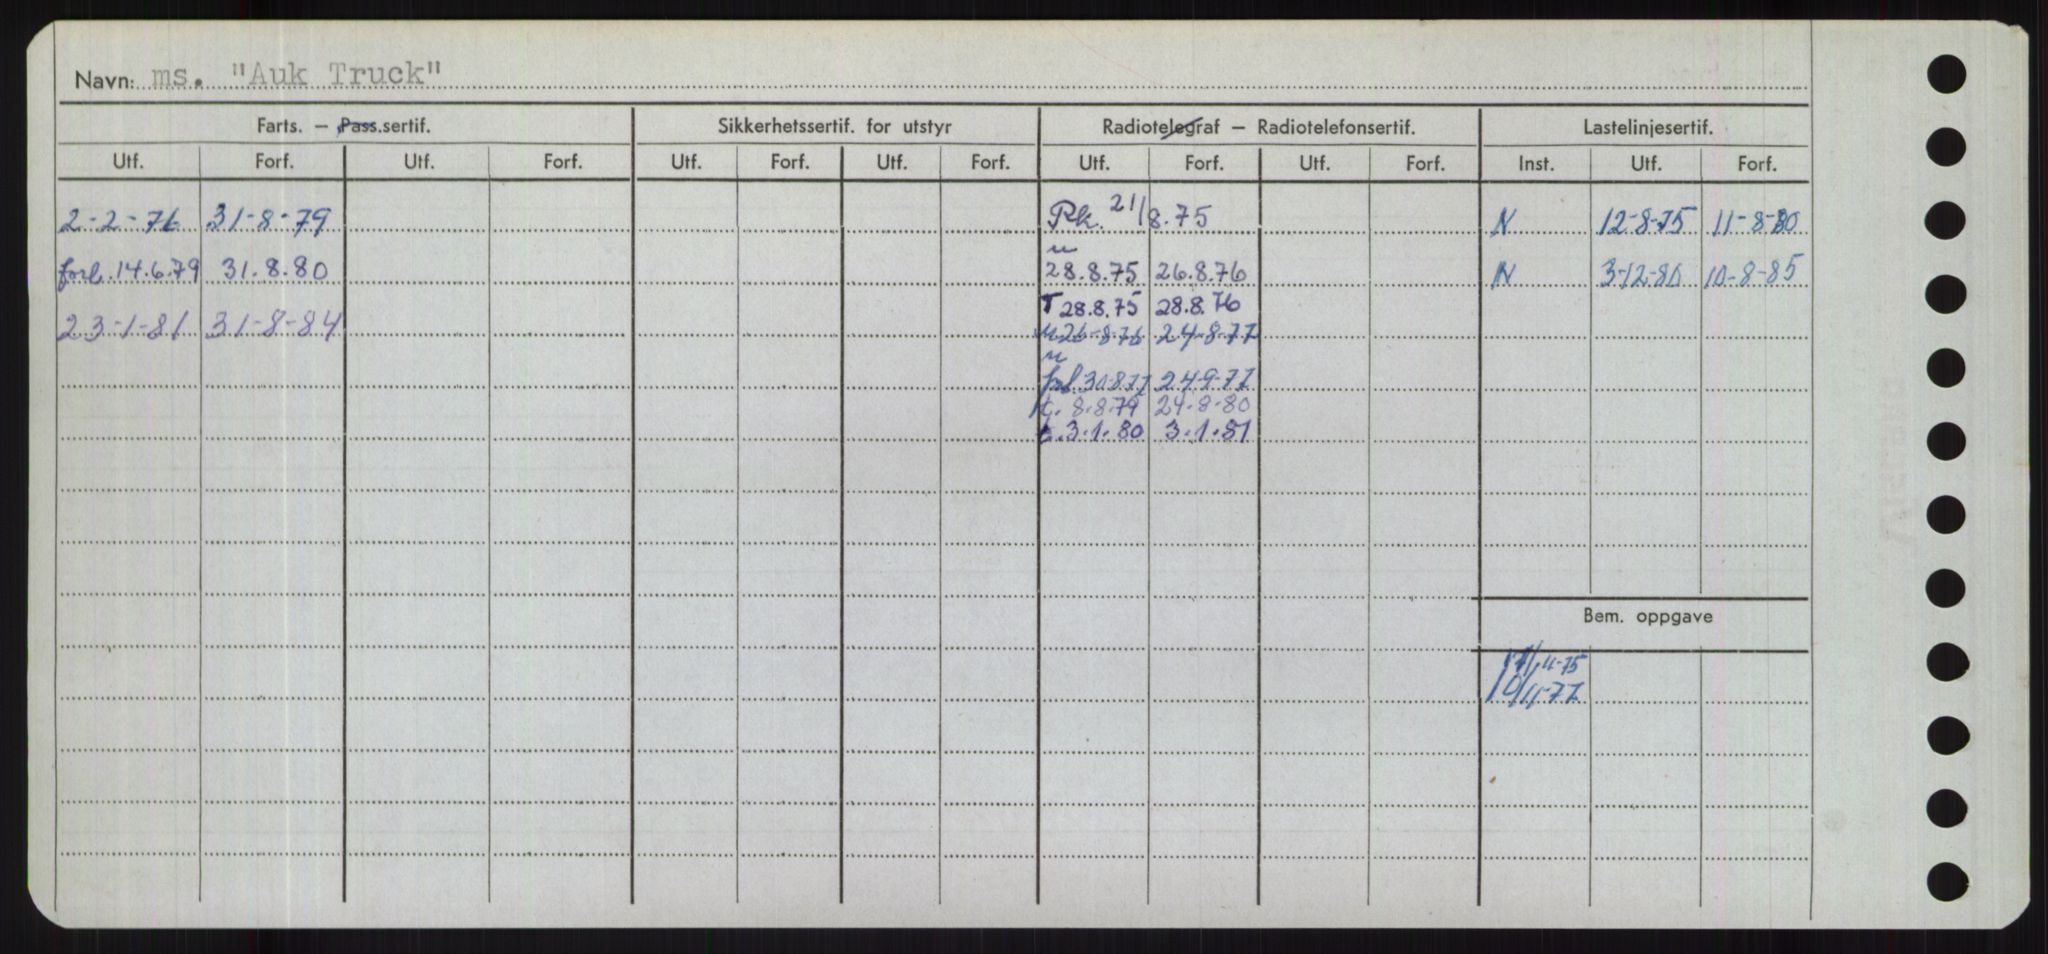 Navn: ms. "Auk Truck"
Farts. – Pass.sertif. Sikkerhetssertif. for utstyr Radiotelegraf – Radiotelefonsertif. Lastelinjesertif.
Utf. Forf. Utf. Forf. Utf. Forf. Utf. Forf. Utf. Forf. Utf. Forf. Inst. Utf. Forf.
2-2-76 31-8-79 Pk. 21/8.75 N 12-8-75 11-8-80
forl. 14.6.79 31.8.80 28.8.75 26.8.76 N 3-12-80 10-8-85
T 28.8.75 28.8.76
23-1-81 31-8-84 26-8-76 24-8-77
forl. 30-8-77 24-9-77
t. 8.8.79 24-8-80
t. 3.1.80 3.1.81
Bem. oppgave
17/4-75
10/11-77